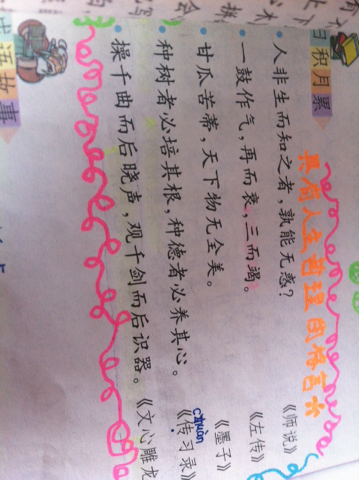 日积月累
具有人生哲理的格言
人非生而知之者，孰能无惑？《师说》
一鼓作气，再而衰，三而竭。《左传》
甘瓜苦蒂，天下物无全美。《墨子》
种树者必培其根，种德者必养其心。《传习录》
操千曲而后晓声，观千剑而后识器。《文心雕龙
语故事